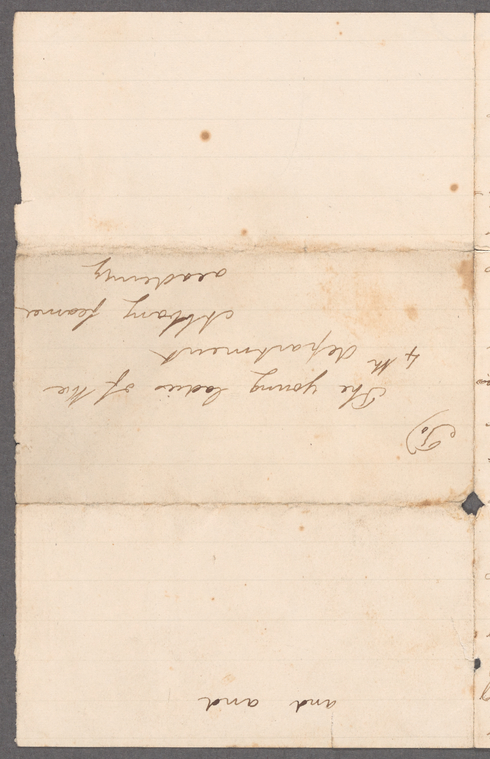 To
The young ladies of the
4th department
Albany female
academy
and and